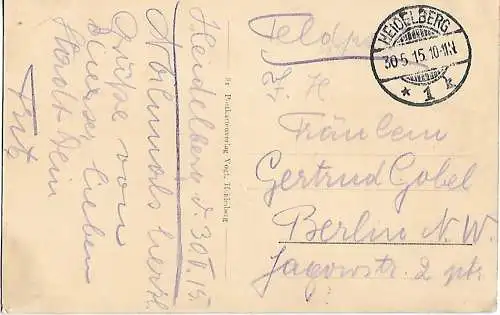 Heidelberg d. 30.V.15.
Nochmals herzl.
Grüße von
dieser lieben
Stadt Dein
Fritz
Postkartenverlag Vogt, Heidelberg
Feldpost
HEIDELBERG
30.5.15.10-11N
* 1 k
Fräulein
Gertrud Gobel
Berlin N.W.
Jagowstr. 2 ptr.